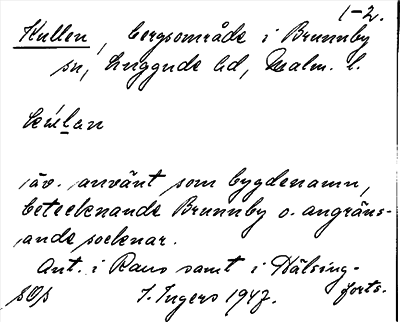 1-2.
Kullen, bergsområde i Brunnby
sn, Luggude hd, Malm. l.
kúlan
äv. använt som bygdenamn,
betecknande Brunnby o. angräns-
ande socknar.
Ant. i Raus samt i Hälsing-
forts.
sOs I. Ingers 1947.